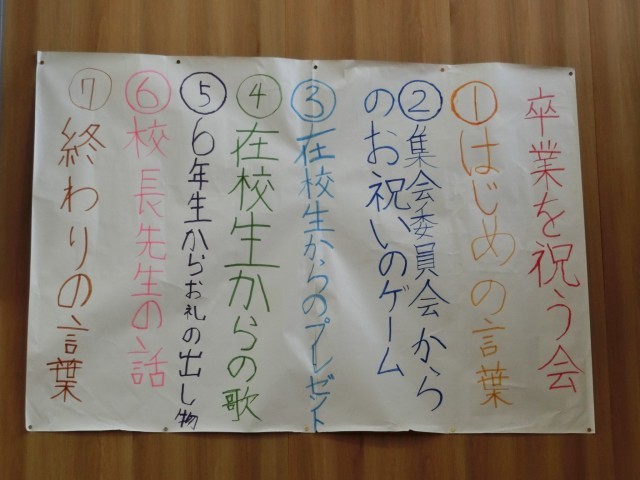 卒業を祝う会
①はじめの言葉
②集会委員会から
のお祝いのゲーム
③在校生からのプレゼント
④在校生からの歌
⑤6年生からお礼の出し物
⑥校長先生の話
⑦終わりの言葉